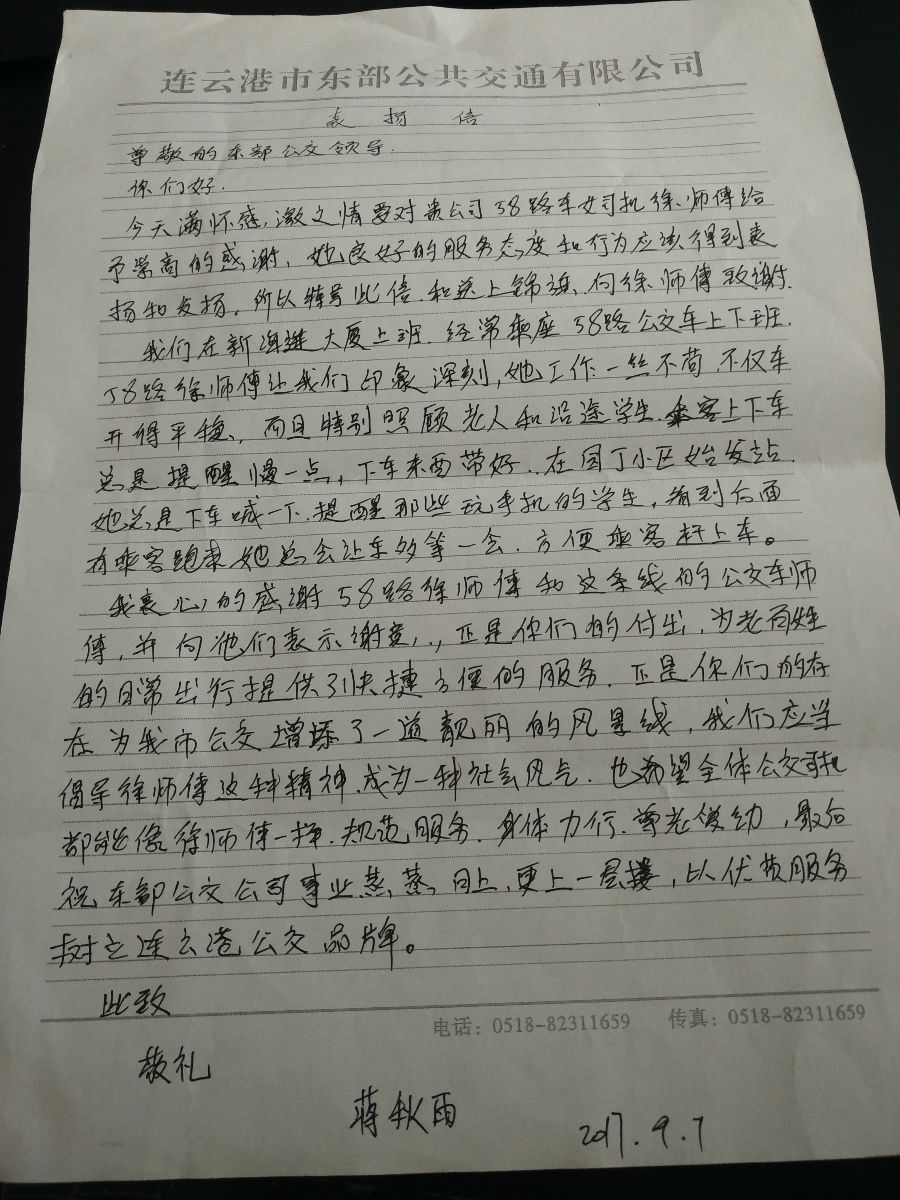 连云港市东部公共交通有限公司
表扬信
尊敬的东部公交领导.
你们好.
今天满怀感激之情要对贵公司58路车女司机徐师傅给
予崇高的感谢, 她良好的服务态度和行为应该得到表
扬和发扬, 所以特写此信和送上锦旗, 向徐师傅致谢.
我们在新海连大厦上班. 经常乘座58路公交车上下班.
58路徐师傅让我们印象深刻, 她工作一丝不苟, 不仅车
开得平稳, 而且特别照顾老人和沿途学生. 乘客上下车
总是提醒慢一点, 下车东西带好. 在园丁小区始发站.
她总是下车喊一下. 提醒那些玩手机的学生, 看到后面
有乘客跑来她总会让车多等一会. 方便乘客赶上车。
我衷心的感谢58路徐师傅和这条线的公交车师
傅, 并向他们表示谢意., 正是你们的付出, 为老百姓
的日常出行提供了快捷方便的服务. 正是你们的存
在为我市公交增添了一道靓丽的风景线, 我们应当
倡导徐师傅这种精神. 成为一种社会风气. 也希望全体公交司机
都能像徐师傅一样. 规范服务. 身体力行. 尊老爱幼, 最后
祝东部公交公司事业蒸蒸日上, 更上一层楼, 以优质服务
树立连云港公交品牌。
此致
电话: 0518-82311659 传真: 0518-82311659
敬礼
蒋秋雨
2017. 9. 7